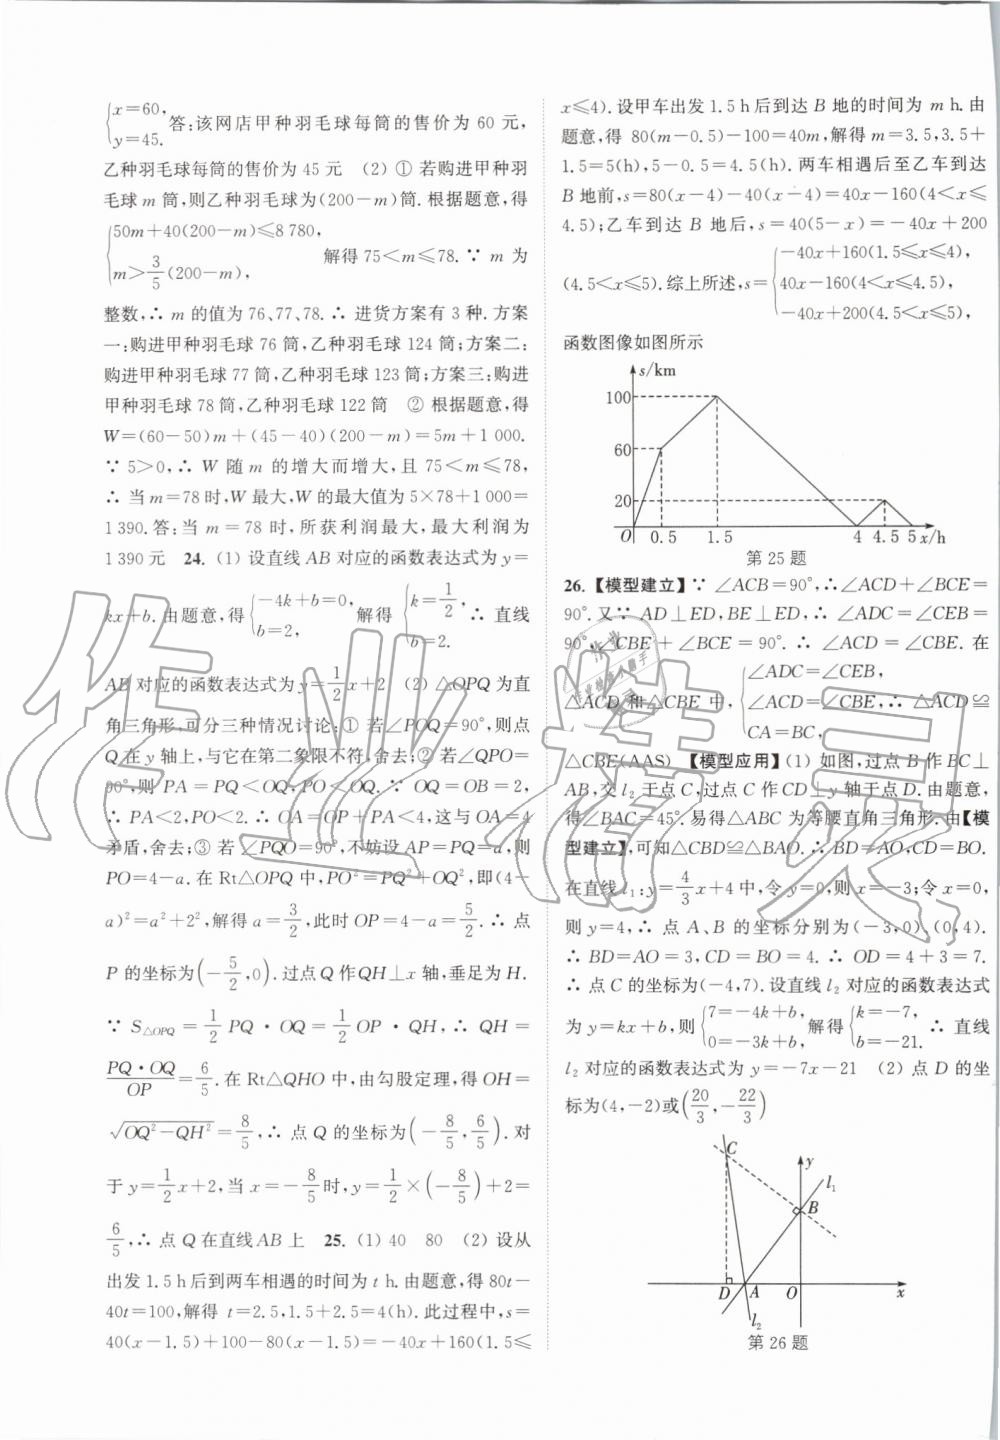 {x=60,
y=45. 答:该网店甲种羽毛球每筒的售价为 60 元,
乙种羽毛球每筒的售价为 45 元 (2) ① 若购进甲种羽
毛球 m 筒,则乙种羽毛球为(200-m)筒. 根据题意,得
{50m+40(200-m)≤8 780,
m>3/5(200-m), 解得 75<m≤78. ∵ m 为
整数,∴ m 的值为 76、77、78. ∴ 进货方案有 3 种. 方案
一:购进甲种羽毛球 76 筒,乙种羽毛球 124 筒;方案二:
购进甲种羽毛球 77 筒,乙种羽毛球 123 筒;方案三:购进
甲种羽毛球 78 筒,乙种羽毛球 122 筒 ② 根据题意,得
W=(60-50)m+(45-40)(200-m)=5m+1 000.
∵ 5>0,∴ W 随 m 的增大而增大,且 75<m≤78,
∴ 当 m=78 时,W 最大,W 的最大值为 5×78+1 000=
1 390. 答:当 m=78 时,所获利润最大,最大利润为
1 390 元 24. (1) 设直线 AB 对应的函数表达式为 y=
kx+b. 由题意,得 {-4k+b=0, b=2, 解得 {k=1/2, b=2. ∴ 直线
AB 对应的函数表达式为 y=1/2x+2 (2) △OPQ 为直
角三角形,可分三种情况讨论:① 若∠POQ=90°,则点
Q 在 y 轴上,与它在第二象限不符,舍去;② 若∠QPO=
90°,则 PA=PQ<OQ,PO<OQ. ∵ OQ=OB=2,
∴ PA<2,PO<2. ∴ OA=OP+PA<4,这与 OA=4
矛盾,舍去;③ 若∠PQO=90°,不妨设 AP=PQ=a,则
PO=4-a. 在 Rt△OPQ 中,PO²=PQ²+OQ²,即(4-
a)²=a²+2²,解得 a=3/2,此时 OP=4-a=5/2. ∴ 点
P 的坐标为(-5/2,0). 过点 Q 作 QH⊥x 轴,垂足为 H.
∵ S△OPQ=1/2 PQ·OQ=1/2 OP·QH,∴ QH=
PQ·OQ/OP=6/5. 在 Rt△QHO 中,由勾股定理,得 OH=
√(OQ²-QH²)=8/5,∴ 点 Q 的坐标为(-8/5,6/5). 对
于 y=1/2x+2,当 x=-8/5时,y=1/2×(-8/5)+2=
6/5,∴ 点 Q 在直线 AB 上 25. (1) 40 80 (2) 设从
出发 1.5 h 后到两车相遇的时间为 t h. 由题意,得 80t-
40t=100,解得 t=2.5,1.5+2.5=4(h). 此过程中,s=
40(x-1.5)+100-80(x-1.5)=-40x+160(1.5≤
x≤4). 设甲车出发 1.5 h 后到达 B 地的时间为 m h. 由
题意,得 80(m-0.5)-100=40m,解得 m=3.5,3.5+
1.5=5(h),5-0.5=4.5(h). 两车相遇后至乙车到达
B 地前,s=80(x-4)-40(x-4)=40x-160(4<x≤
4.5);乙车到达 B 地后,s=40(5-x)=-40x+200
(4.5<x≤5). 综上所述,s={-40x+160(1.5≤x≤4),
40x-160(4<x≤4.5),
-40x+200(4.5<x≤5),
函数图像如图所示
s/km
100
60
20
O 0.5 1.5 4 4.5 5 x/h
第 25 题
26. 【模型建立】∵ ∠ACB=90°,∴ ∠ACD+∠BCE=
90°. 又∵ AD⊥ED,BE⊥ED,∴ ∠ADC=∠CEB=
90°,∠CBE+∠BCE=90°. ∴ ∠ACD=∠CBE. 在
△ACD 和△CBE 中,{∠ADC=∠CEB,
∠ACD=∠CBE,
CA=BC, ∴ △ACD≌
△CBE(AAS) 【模型应用】(1) 如图,过点 B 作 BC⊥
AB,交 l₂ 于点 C,过点 C 作 CD⊥y 轴于点 D. 由题意,
得∠BAC=45°. 易得△ABC 为等腰直角三角形. 由【模
型建立】,可知△CBD≌△BAO. ∴ BD=AO,CD=BO.
在直线 l₁:y=4/3x+4 中,令 y=0,则 x=-3;令 x=0,
则 y=4,∴ 点 A、B 的坐标分别为(-3,0)、(0,4).
∴ BD=AO=3,CD=BO=4. ∴ OD=4+3=7.
∴ 点 C 的坐标为(-4,7). 设直线 l₂ 对应的函数表达式
为 y=kx+b,则 {7=-4k+b, 0=-3k+b, 解得 {k=-7, b=-21. ∴ 直线
l₂ 对应的函数表达式为 y=-7x-21 (2) 点 D 的坐
标为(4,-2)或(20/3,-22/3)
C
y
l₁
B
D A O x
l₂
第 26 题
作业精灵